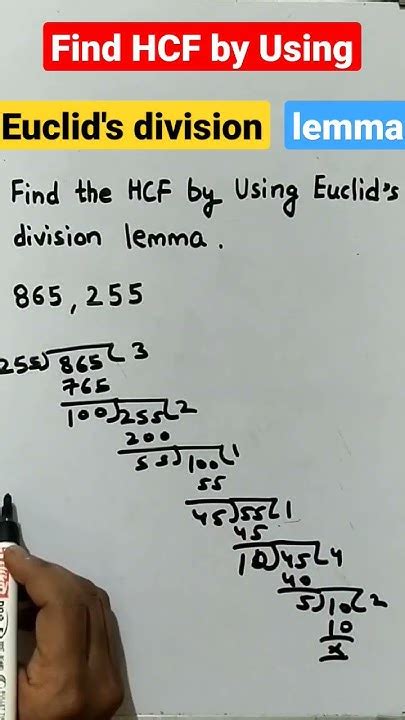 Find HCF by Using
Euclid's division lemma
Find the HCF by Using Euclid's
division lemma.
865, 255
255) 865 ( 3
765
100) 255 ( 2
200
55) 100 ( 1
55
45) 55 ( 1
45
10) 45 ( 4
40
5) 10 ( 2
10
x